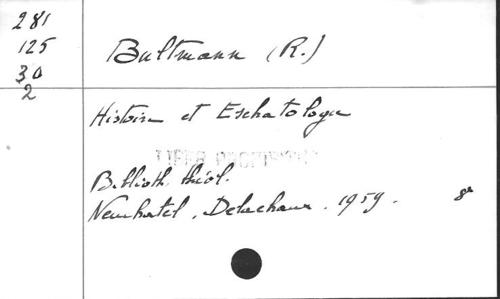 281
125
30
2
Bultmann (R.)
Histoire et Eschatologie
Biblioth. théol.
Neuchatel, Delachaux. 1959. 8°